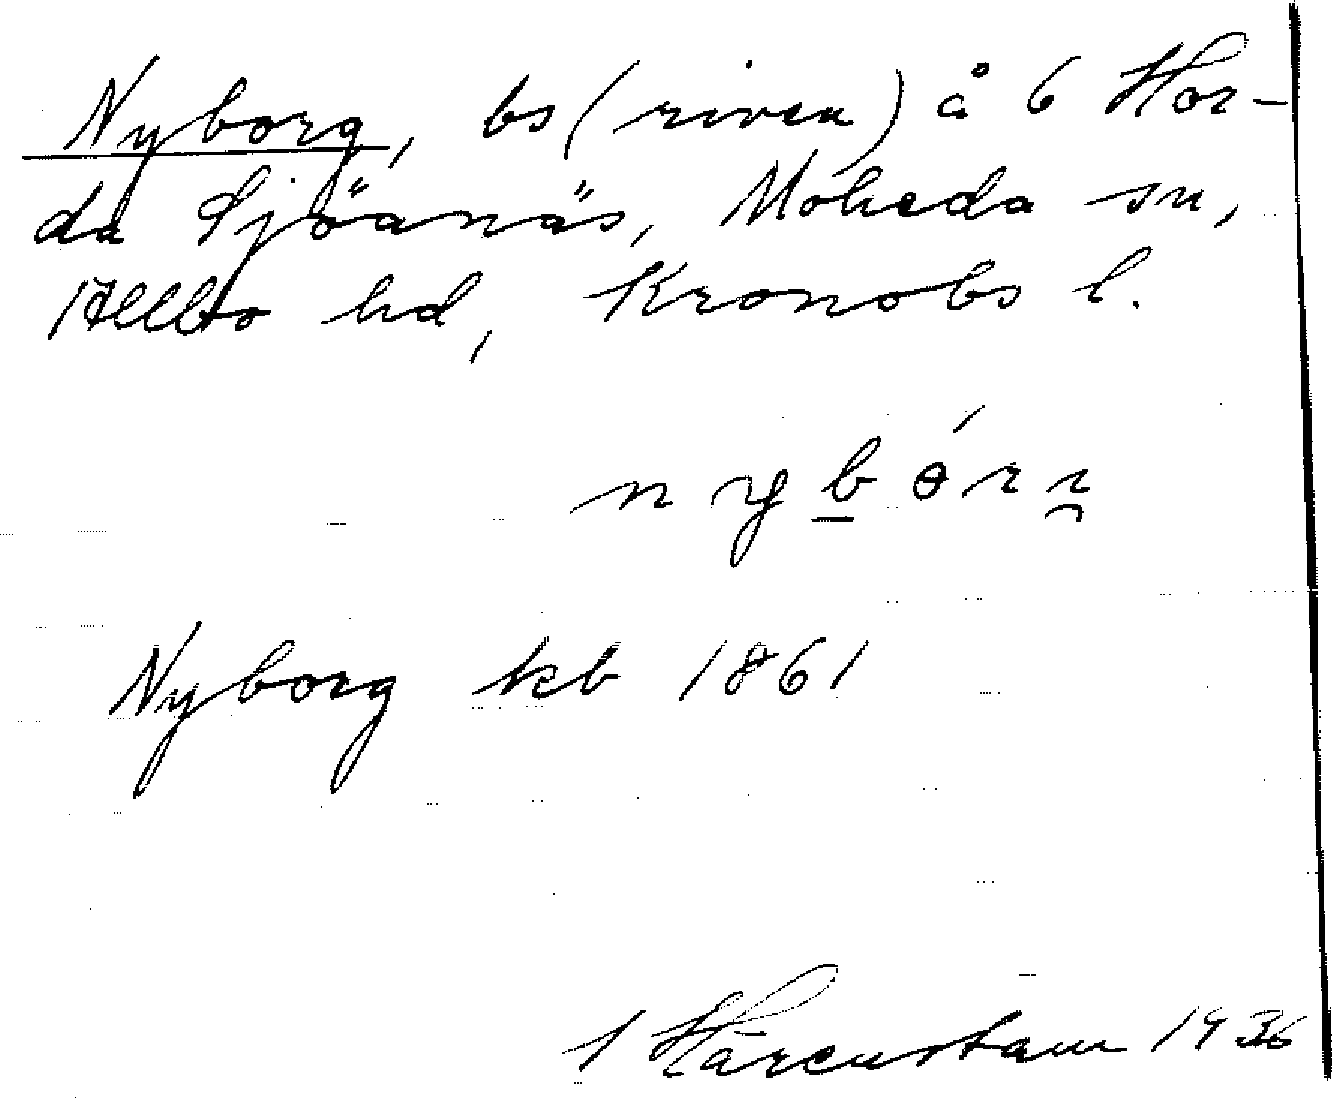 Nyborg, bs (riven) å 6 Hor-
da Sjöanäs, Moheda sn,
Allbo hd, Kronobs l.
Nyborg kb 1861
Härenstam 1936